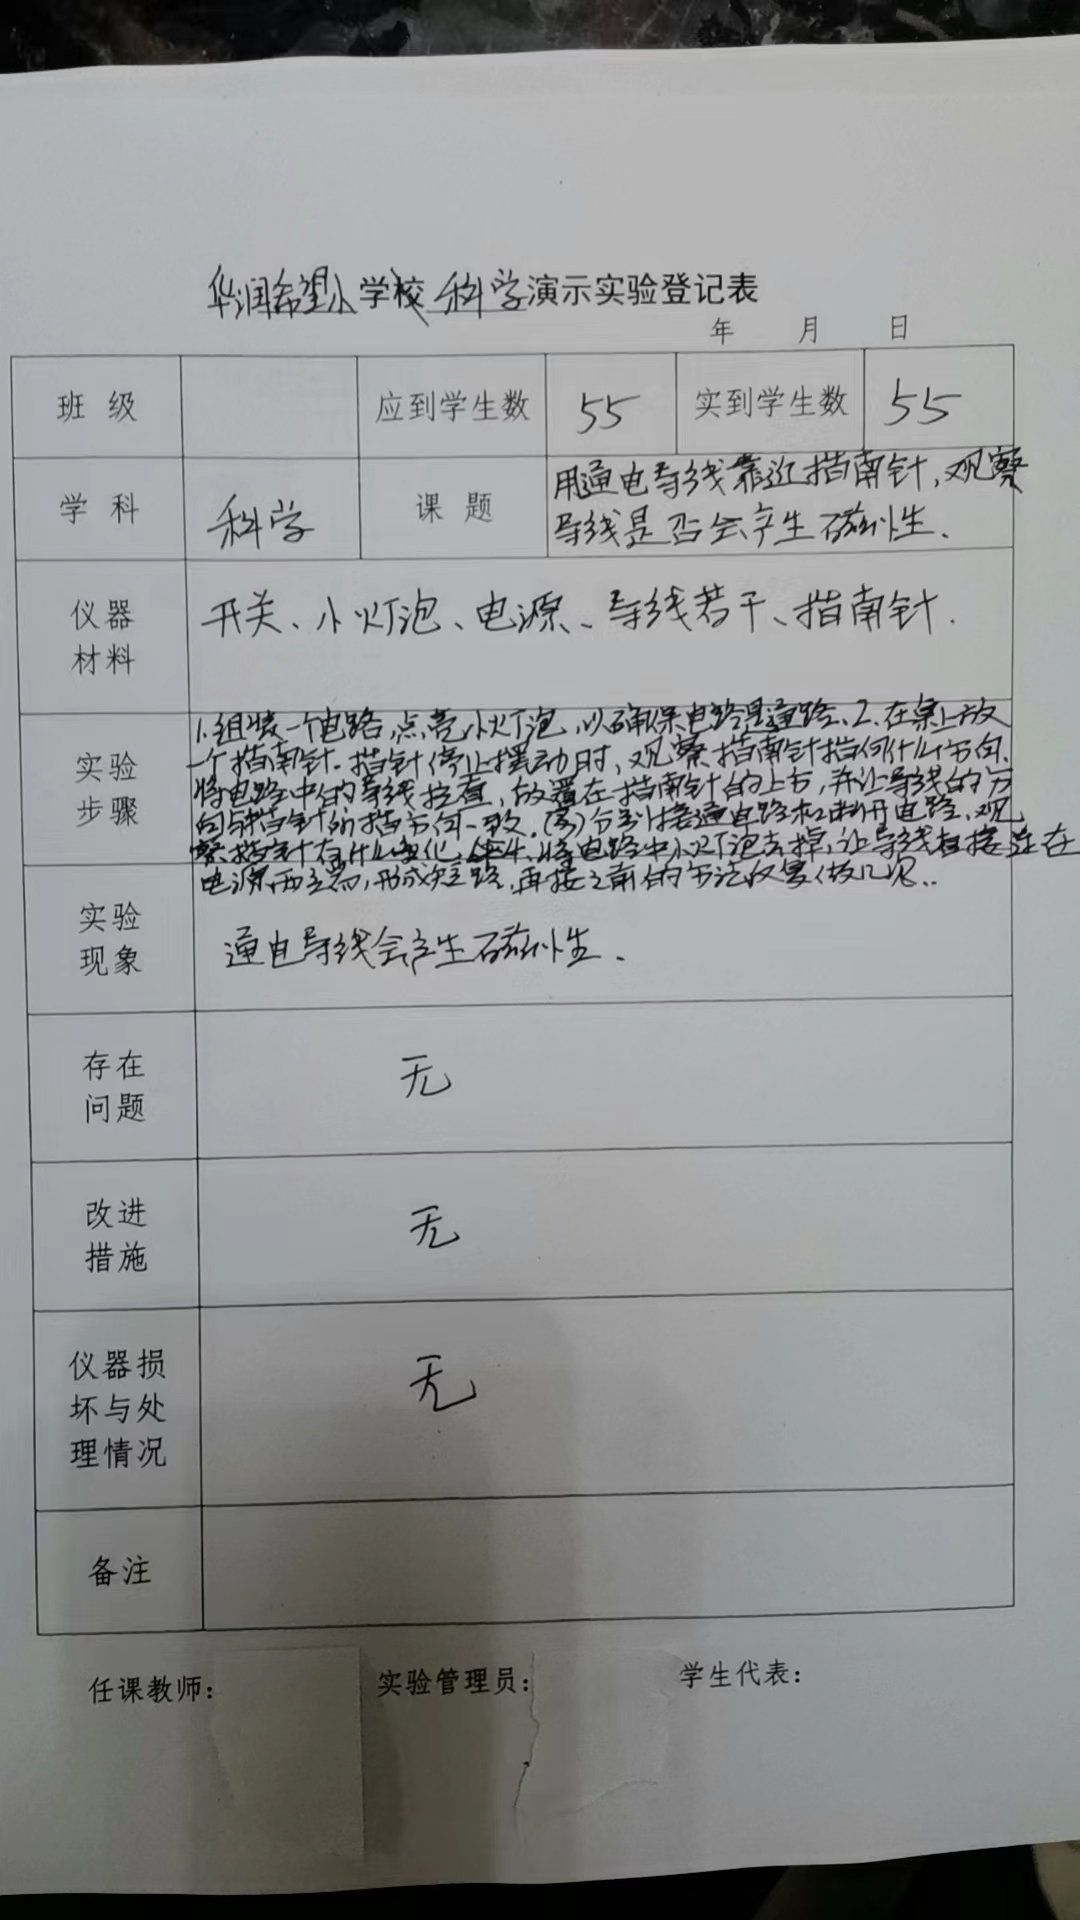 华润希望小学校 科学演示实验登记表
年 月 日
班级 应到学生数 55 实到学生数 55
学科 科学 课题 用通电导线靠近指南针,观察
导线是否会产生磁性.
仪器
材料
开关、小灯泡、电源、导线若干、指南针.
实验
步骤
1.组装一个电路,点亮小灯泡,以确保电路是通路、2.在桌上放
一个指南针.指针停止摆动时,观察指南针指向什么方向.
将电路中的导线拉直,放置在指南针的上方,并让导线的方
向与指针的指方向一致.(3)分别接通电路和断开电路、观
察指针有什么变化. 将电路中小灯泡去掉,让导线直接连在
电源两端,形成短路,再按之前的方法反复做几次..
实验
现象
通电导线会产生磁性.
存在
问题
无
改进
措施
无
仪器损
坏与处
理情况
无
备注
任课教师: 实验管理员: 学生代表: